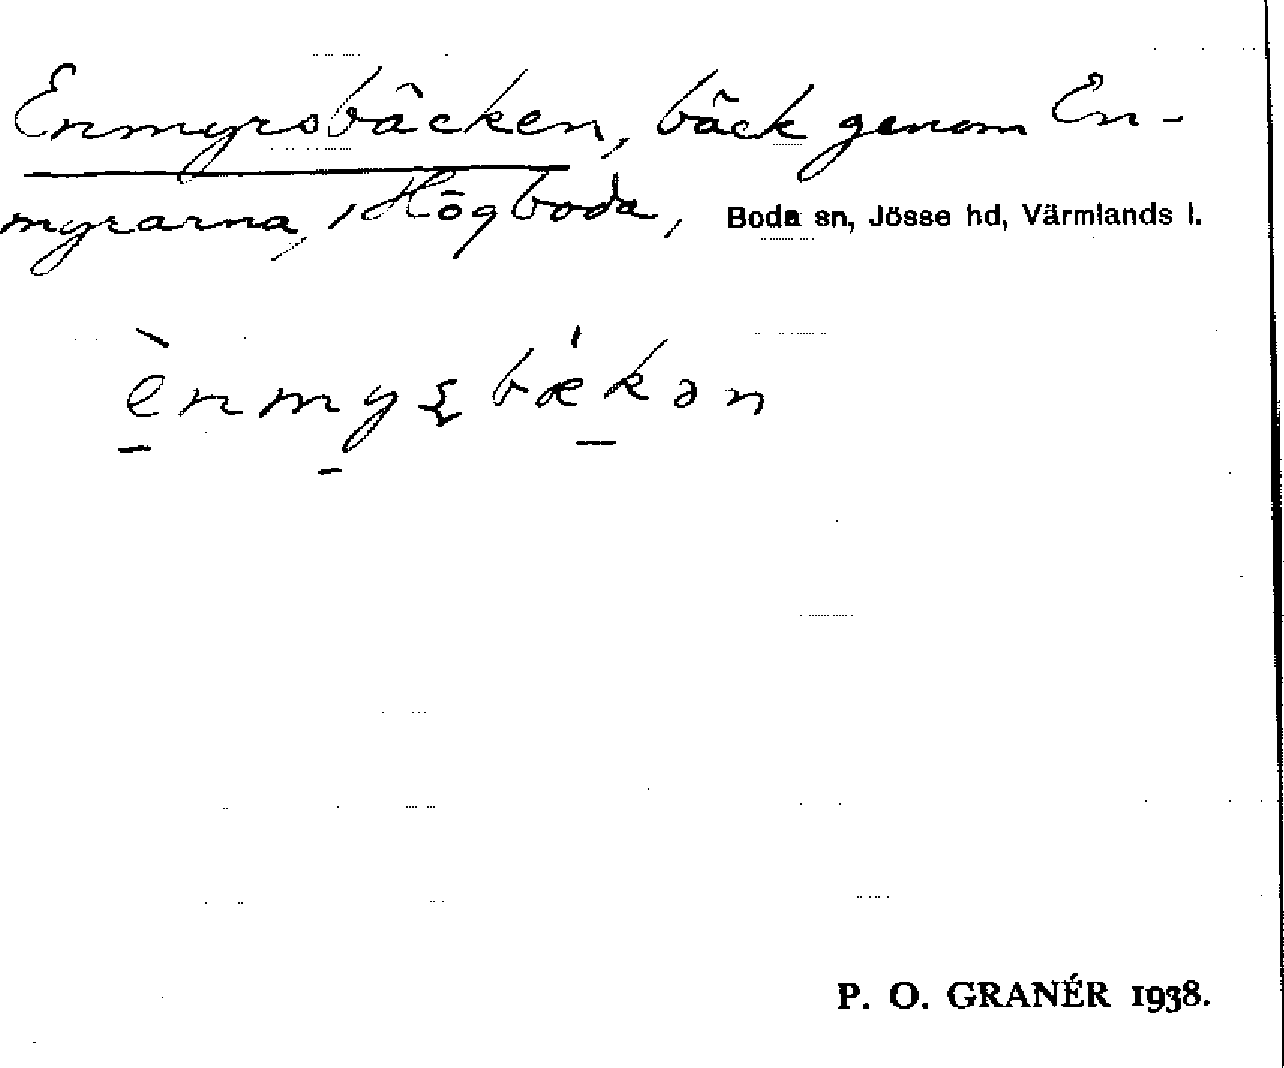 Enmyrsbäcken, bäck genom En-
myrarna, Högboda, Boda sn, Jösse hd, Värmlands l.
P. O. GRANÉR 1938.